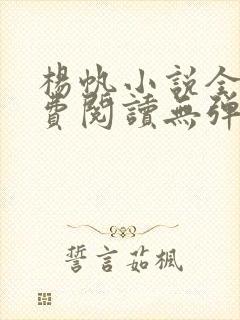 楊帆小說全
費閱讀無彈
誓言茹楓